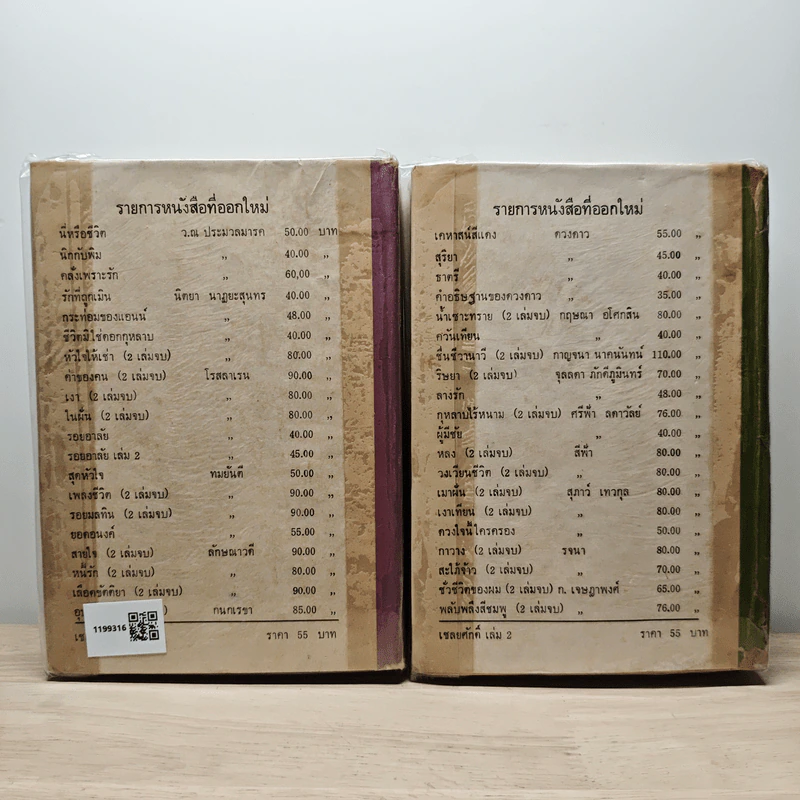 รายการหนังสือที่ออกใหม่
นี่หรือชีวิต ว.ณ ประมวลมารค 50.00 บาท
นิกกับพิม ,, 40.00 ,,
คลั่งเพราะรัก ,, 60,00 ,,
รักที่ถูกเมิน นิตยา นาฏยะสุนทร 40.00 ,,
กระท่อมของแอนน์ ,, 48.00 ,,
ชีวิตมิใช่ดอกกุหลาบ ,, 40.00 ,,
หัวใจให้เช่า (2 เล่มจบ) ,, 80.00 ,,
ค่าของคน (2 เล่มจบ) โรสลาเรน 90.00 ,,
เงา (2 เล่มจบ) ,, 80.00 ,,
ในฝัน (2 เล่มจบ) ,, 80.00 ,,
รอยอาลัย ,, 40.00 ,,
รอยอาลัย เล่ม 2 ,, 45.00 ,,
สุดหัวใจ ทมยันตี 50.00 ,,
เพลงชีวิต (2 เล่มจบ) ,, 90.00 ,,
รอยมลทิน (2 เล่มจบ) ,, 90.00 ,,
ยอดอนงค์ ,, 55.00 ,,
สายใจ (2 เล่มจบ) ลักษณาวดี 90.00 ,,
หนี้รัก (2 เล่มจบ) ,, 80.00 ,,
เลือดขัตติยา (2 เล่มจบ) ,, 90.00 ,,
กนกเรขา 85.00 ,,
ราคา 55 บาท
1199316
รายการหนังสือที่ออกใหม่
เคหาสน์สีแดง ดวงดาว 55.00 ,,
สุริยา ,, 45.00 ,,
ธาตรี ,, 40.00 ,,
คำอธิษฐานของดวงดาว ,, 35.00 ,,
น้ำเซาะทราย (2 เล่มจบ) กฤษณา อโศกสิน 80.00 ,,
ควันเทียน ,, 40.00 ,,
ชื่นชีวานาวี (2 เล่มจบ) กาญจนา นาคนันทน์ 110.00 ,,
ริษยา (2 เล่มจบ) จุลลดา ภักดีภูมินทร์ 70.00 ,,
ลางรัก ,, 48.00 ,,
กุหลาบไร้หนาม (2 เล่มจบ) ศรีฟ้า ลดาวัลย์ 76.00 ,,
ผู้มีชัย ,, 40.00 ,,
หลง (2 เล่มจบ) สีฟ้า 80.00 ,,
วงเวียนชีวิต (2 เล่มจบ) ,, 80.00 ,,
เมาฝัน (2 เล่มจบ) สุภาว์ เทวกุล 80.00 ,,
เงาเทียน (2 เล่มจบ) ,, 80.00 ,,
ดวงใจนี้ใครครอง ,, 50.00 ,,
กาวาง (2 เล่มจบ) รจนา 80.00 ,,
สะใภ้จ้าว (2 เล่มจบ) ,, 70.00 ,,
ชั่วชีวิตของผม (2 เล่มจบ) ก. เจษฎาพงศ์ 65.00 ,,
พลับพลึงสีชมพู (2 เล่มจบ) ,, 76.00 ,,
เชลยศักดิ์ เล่ม 2 ราคา 55 บาท